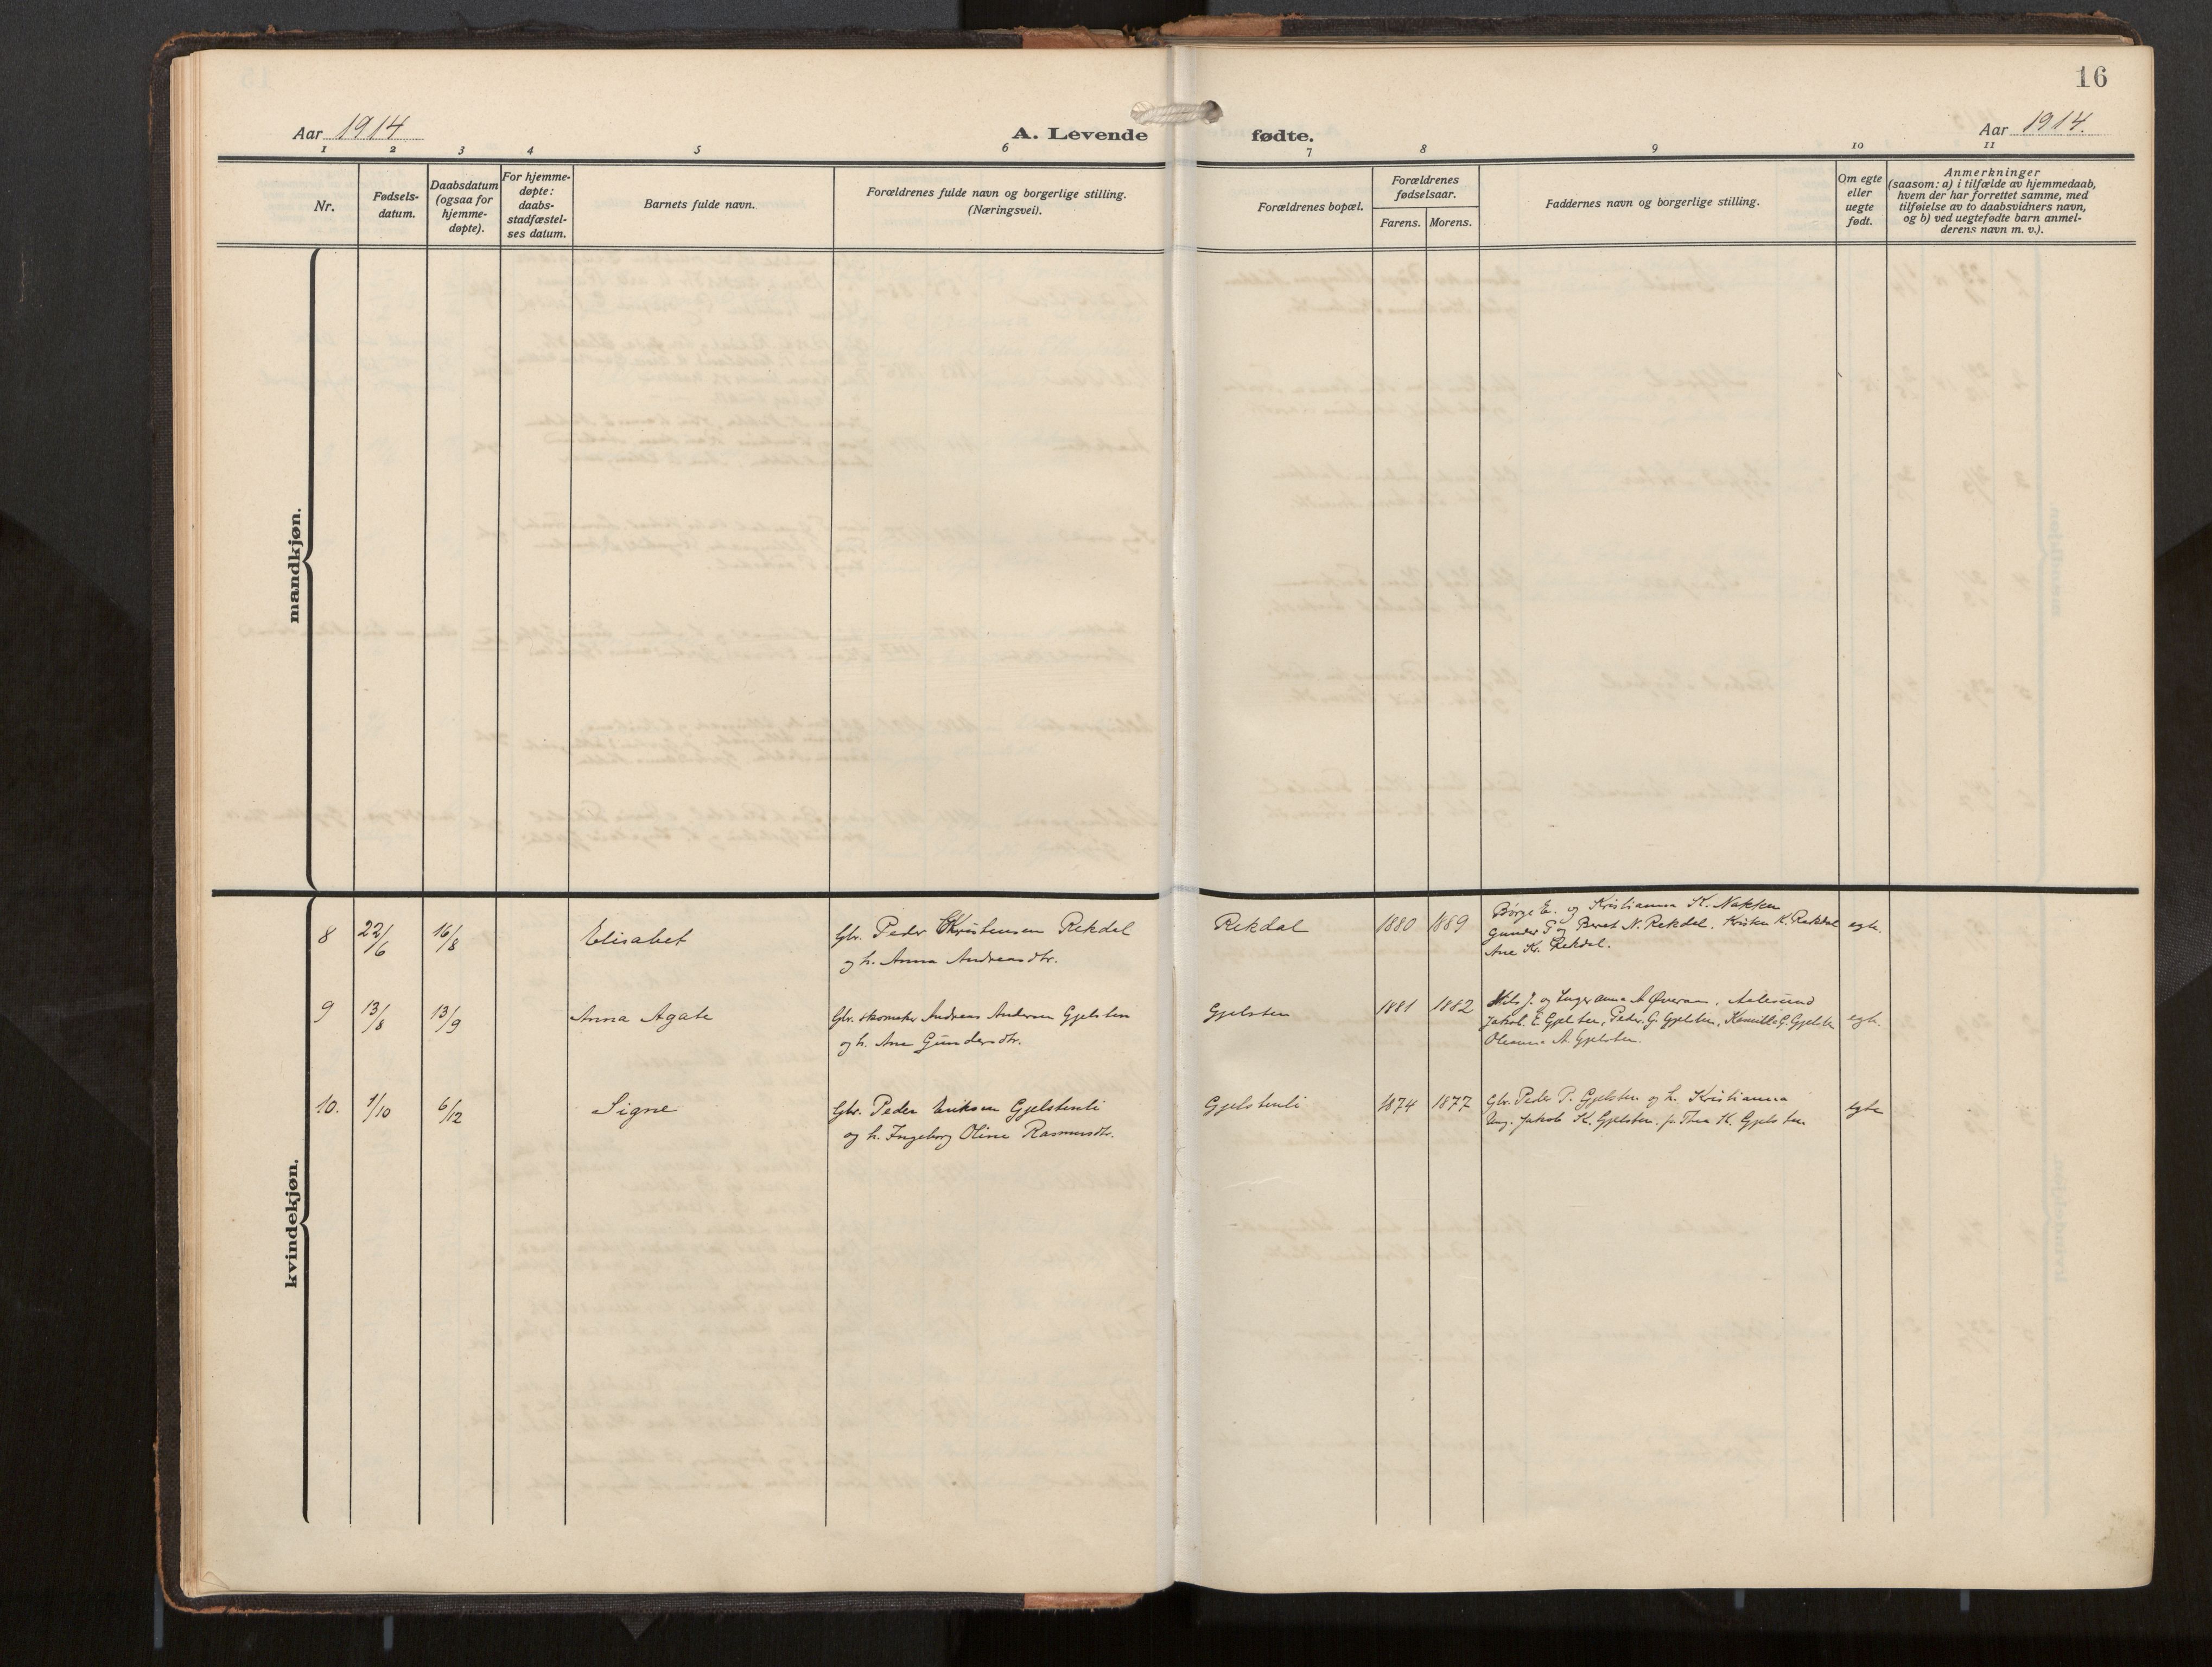 16
Aar 1914
A. Levende fødte.
Aar 1914.
1 2 3 4 5 6 7 8 9 10 11
Nr.
Fødsels-
datum.
Daabsdatum
(ogsaa for
hjemme-
døpte).
For hjemme-
døpte:
daabs-
stadfæstel-
ses datum.
Barnets fulde navn.
Forældrenes fulde navn og borgerlige stilling.
(Næringsvei).
Forældrenes bopæl.
Forældrenes
fødselsaar.
Farens. Morens.
Faddernes navn og borgerlige stilling.
Om egte
eller
uegte
født.
Anmerkninger
(saasom: a) i tilfælde av hjemmedaab,
hvem der har forrettet samme, med
tilføielse av to daabsvidners navn,
og b) ved uegtefødte barn anmel-
derens navn m. v.).
mandkjøn.
kvindekjøn.
8 22/6 16/8 Elisabet
Gbr. Peder Kristensen Rekdal
og h. Anna Andreasdtr.
Rekdal 1880 1889
Børge E. og Kristianna K. Nakken
Gunder P og Beret N. Rekdal. Kristen K. Rekdal
Ane K. Rekdal.
egte.
9 13/8 13/9 Anna Agate
Gbr. skomaker Andreas Andersen Gjelsten
og h. Ane Gundersdtr.
Gjelsten 1881 1882
Nils J. og Inger Anna A. Øveraas, Aalesund
Jakob E. Gjelsten, Peder G. Gjelsten, G. Gjelsten
Oleanna A. Gjelsten.
egte.
10. 1/10 6/12 Signe
Gbr. Peder Eriksen Gjelstenli
og h. Ingeborg Oline Rasmusdtr.
Gjelstenli 1874 1877
Gbr. Peder P. Gjelsten og h. Kristianna
Ung. Jakob K. Gjelsten. p. Thea K. Gjelsten
egte